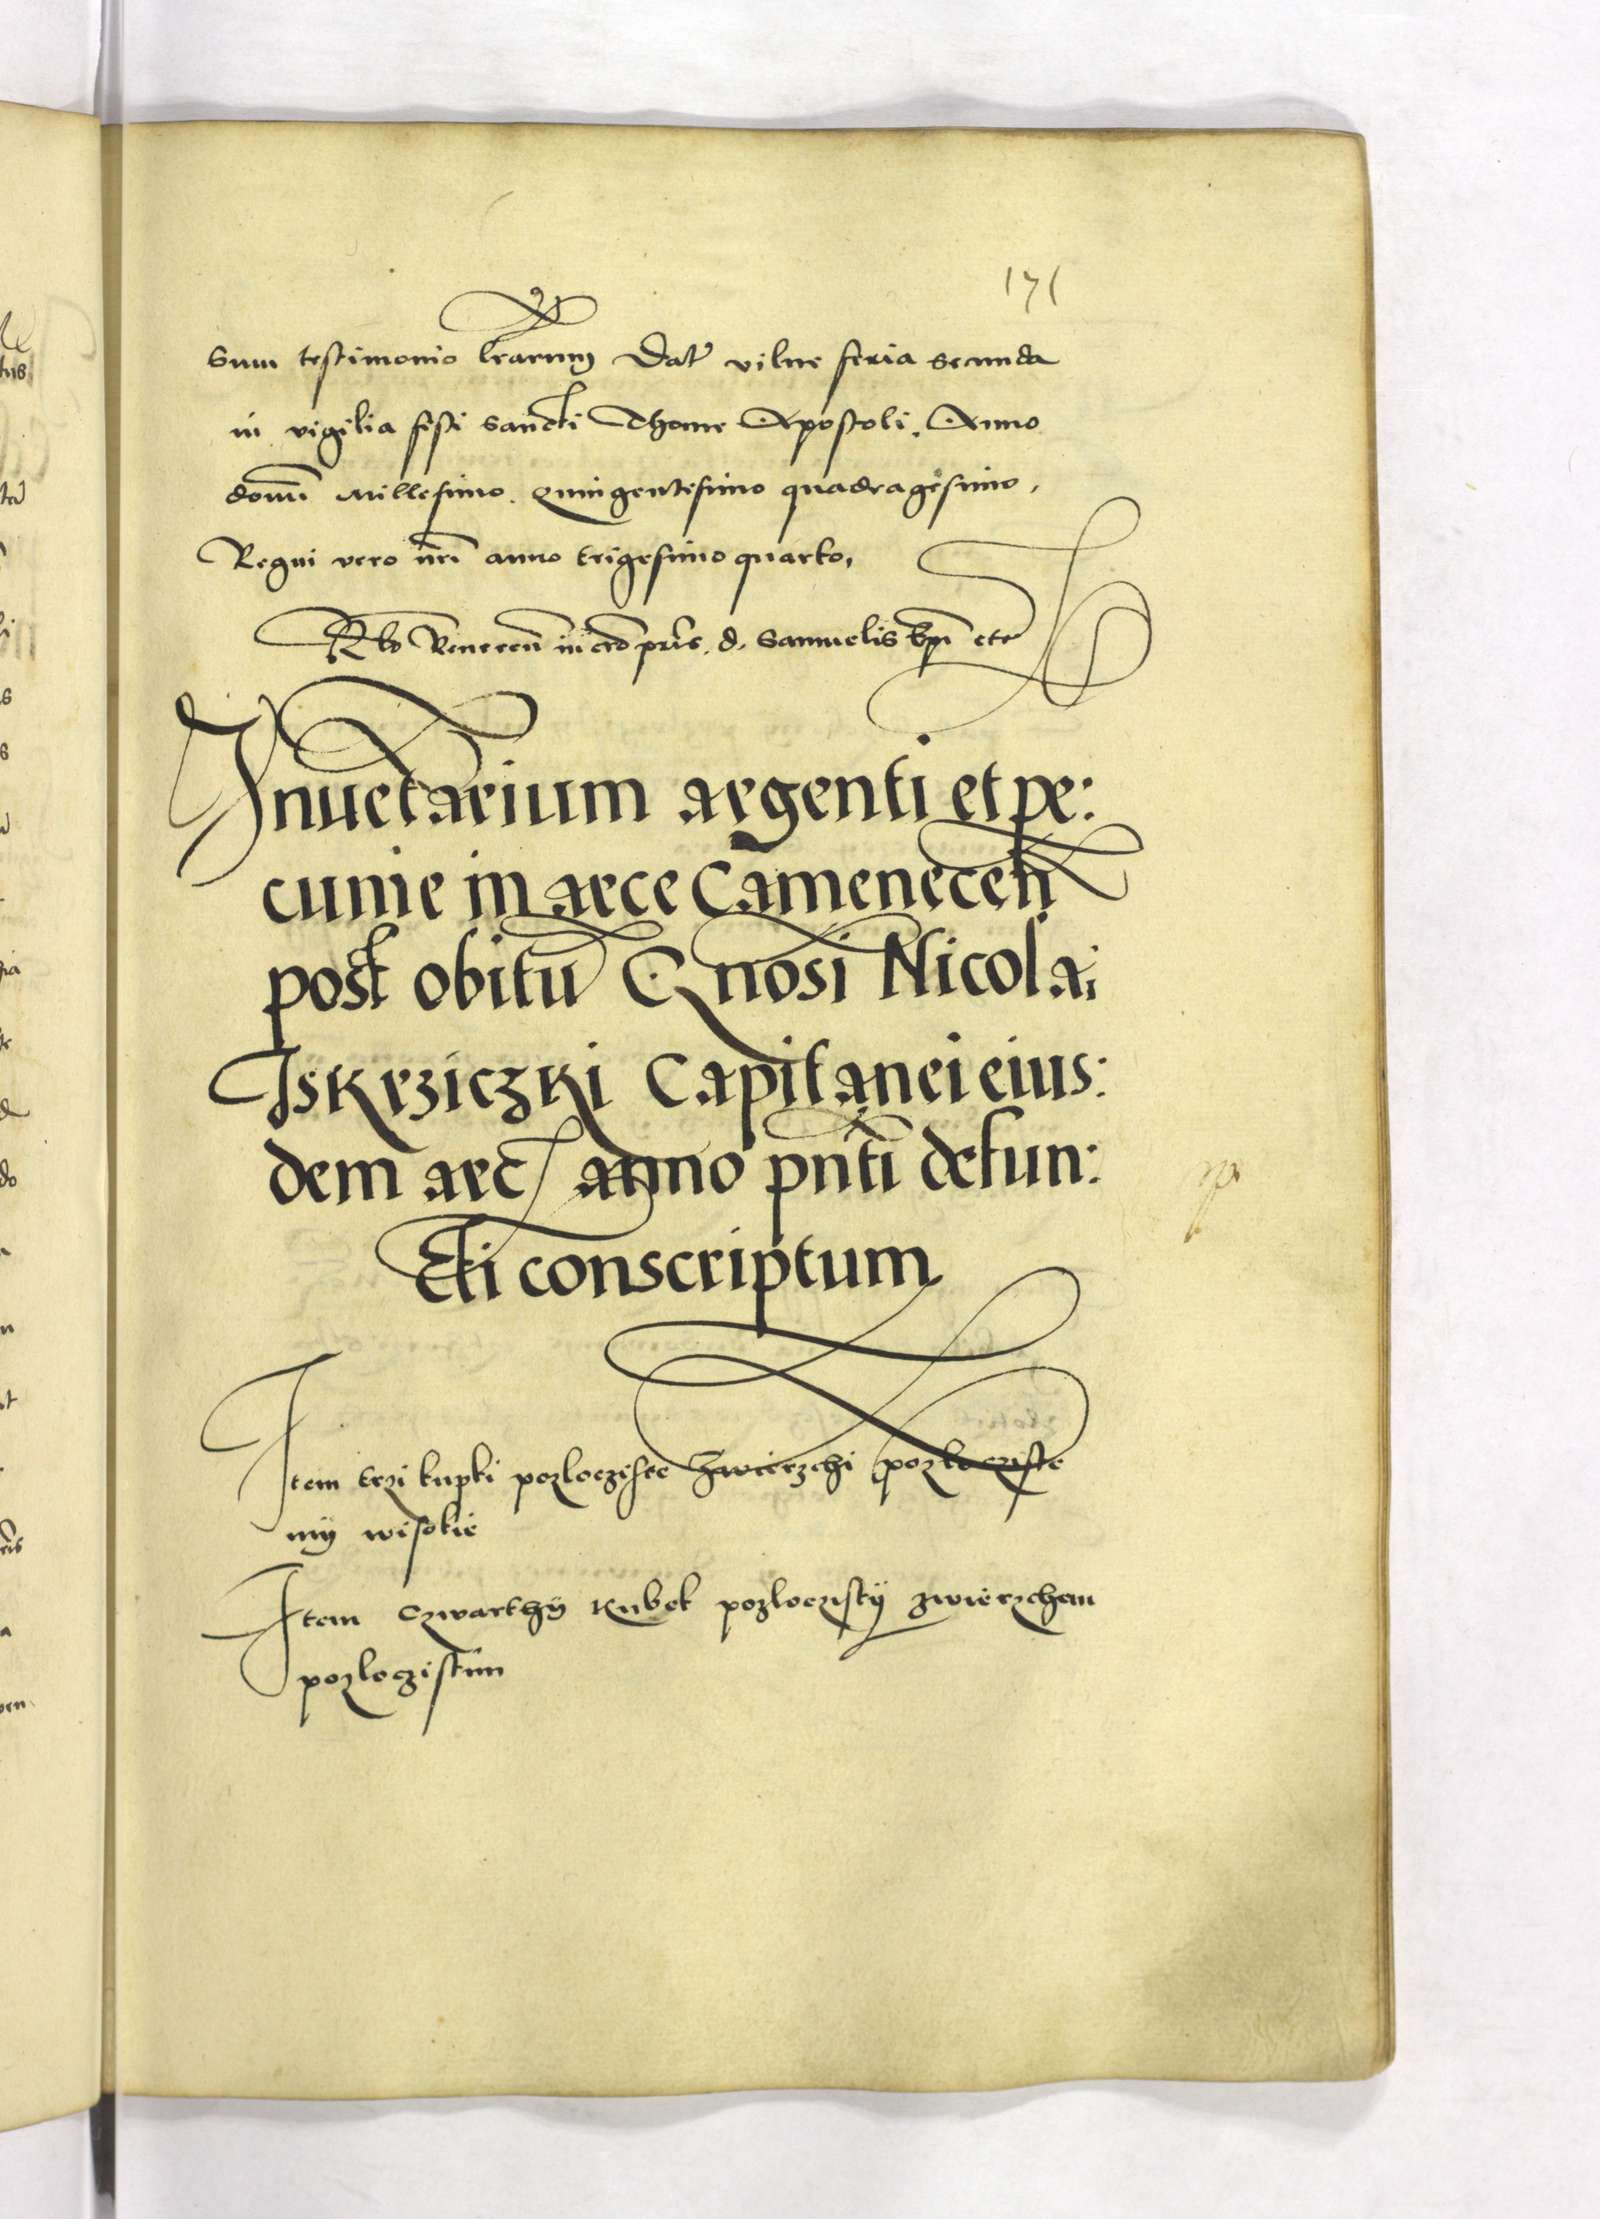 171
sum testimonio lrarum Dat vilne feria secunda
in vigilia festi sancti Thome Apostoli. Anno
domi Millesimo. quingentesimo quadragesimo,
Regni vero nri anno trigesimo quarto,
Rlo Reueren in cro pris. d. Samuelis Epi etc
Inuetarium argenti et pe:
cunie in arce Camenecen
post obitu Gnosi Nicolai
Iskrziczki Capitanei eius:
dem arc anno pnti defun:
cti conscriptum
Item trzi kupki pozlocziste zwierzchi pozlocziste
mÿ wisokie
Item Czwarthÿ Kubek pozloczistÿ zwierzchem
pozloczistim